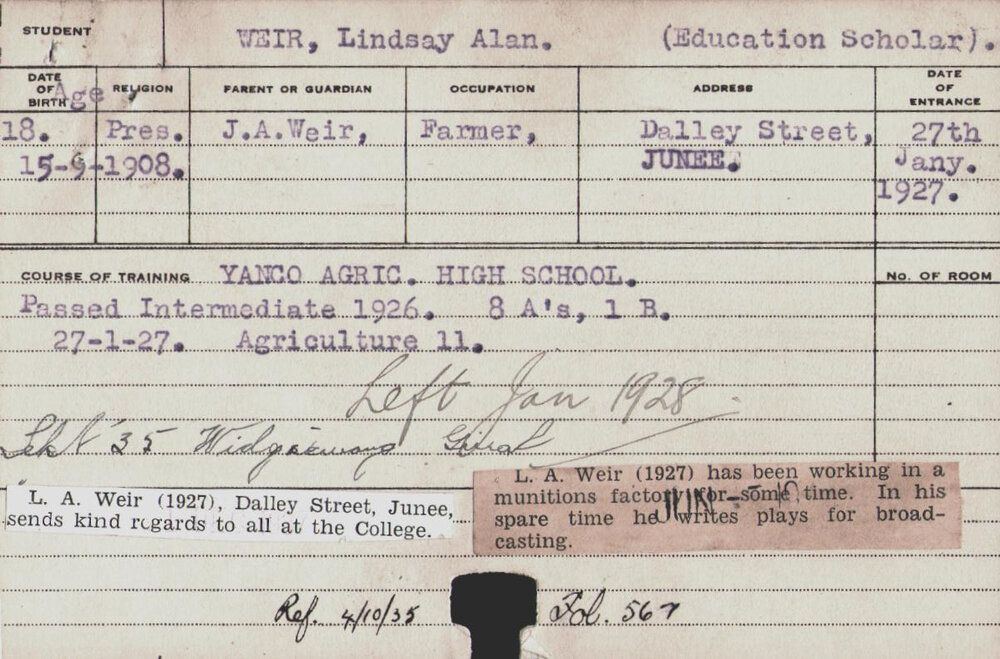 STUDENT WEIR, Lindsay Alan. (Education Scholar).
DATE OF BIRTH Age RELIGION PARENT OR GUARDIAN OCCUPATION ADDRESS DATE OF ENTRANCE
18. Pres. J.A.Weir, Farmer, Dalley Street, 27th
15-9-1908. JUNEE. Jany.
1927.
COURSE OF TRAINING YANCO AGRIC. HIGH SCHOOL. No. OF ROOM
Passed Intermediate 1926. 8 A's, 1 B.
27-1-27. Agriculture 11.
Left Jan 1928
35
L. A. Weir (1927), Dalley Street, Junee,
sends kind regards to all at the College.
L. A. Weir (1927) has been working in a
munitions factory for some time. In his
spare time he writes plays for broad-
casting.
JUN
Ref. 4/10/35 Fol. 567